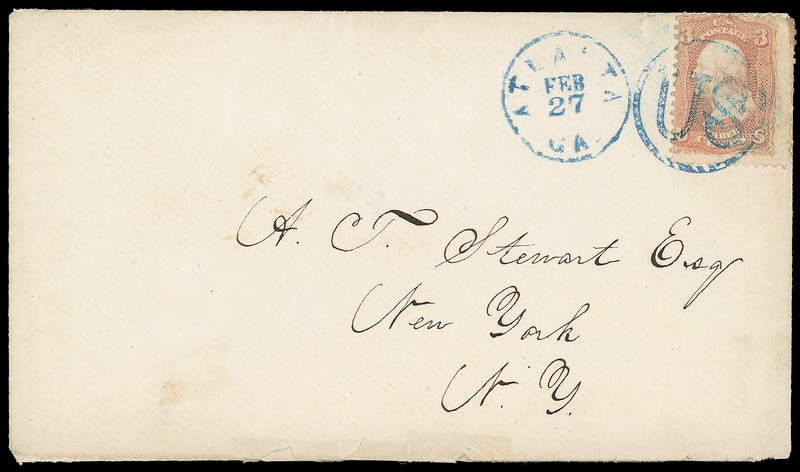 ATLANTA
FEB
27
GA.
US
3 U.S. POSTAGE 3
A. T. Stewart Esq
New York
N. Y.